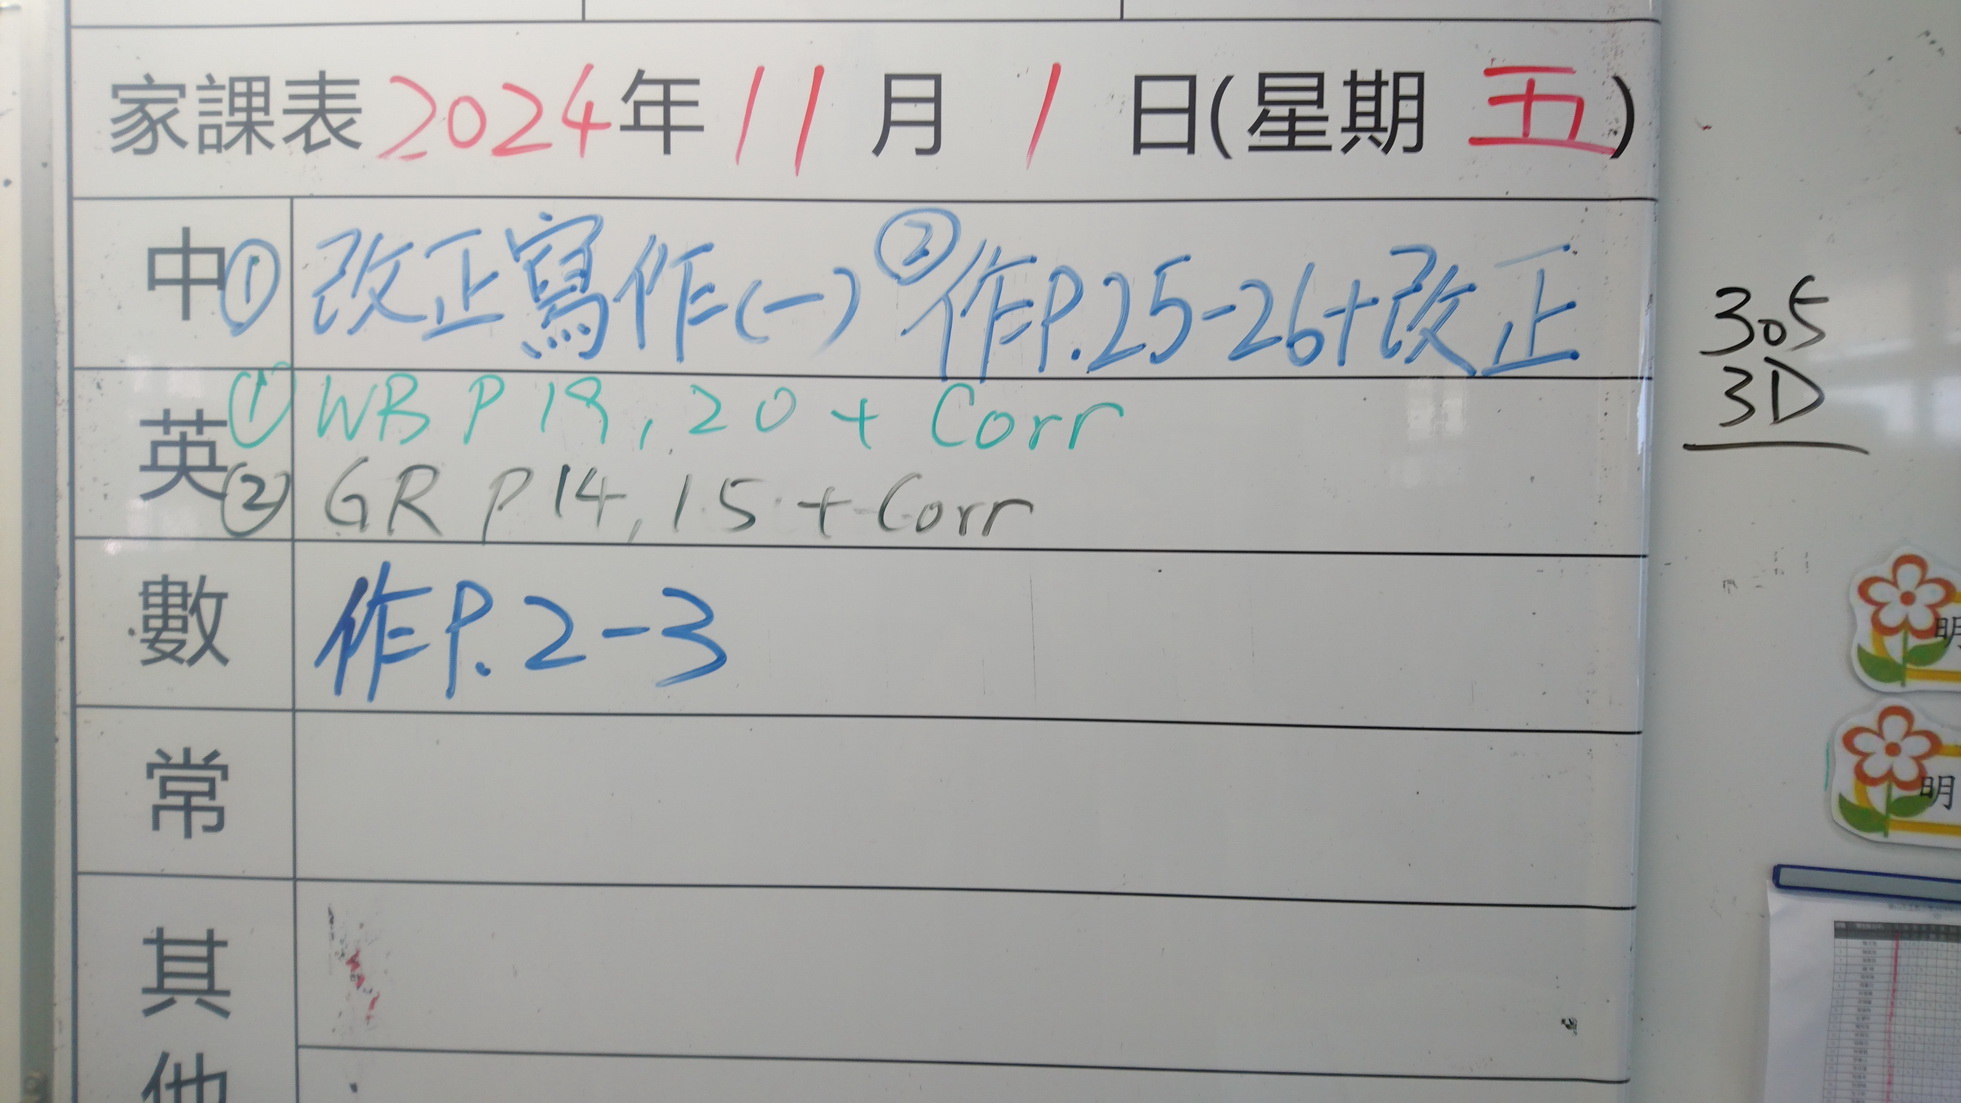 家課表 2024 年 11 月 1 日(星期 五)
中 ① 改正寫作(一) ② 作P.25-26+改正
英 ① WB P 19, 20 + Corr
② GR P 14, 15 + Corr
數 作P. 2-3
常
其
他
305
3D
明
明